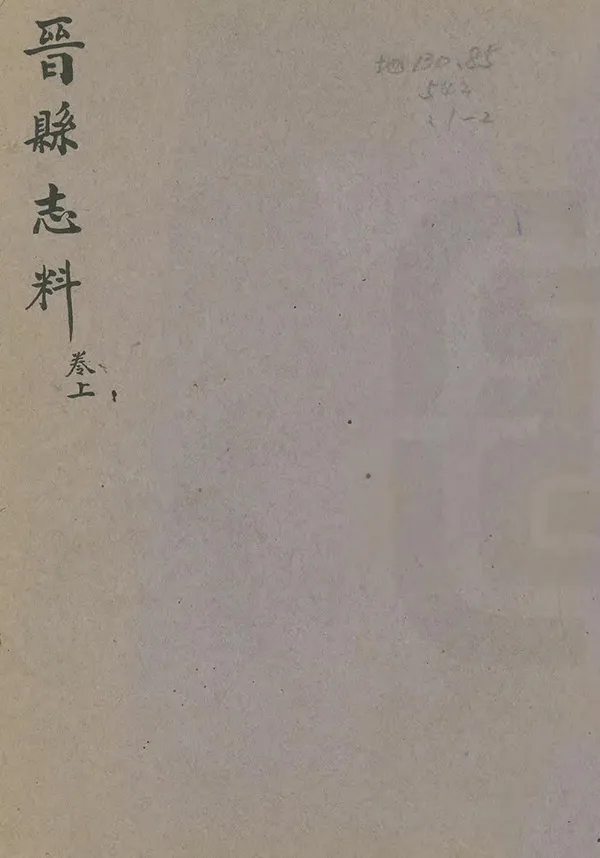 晉縣志料
卷上
地130.85
542
21-2